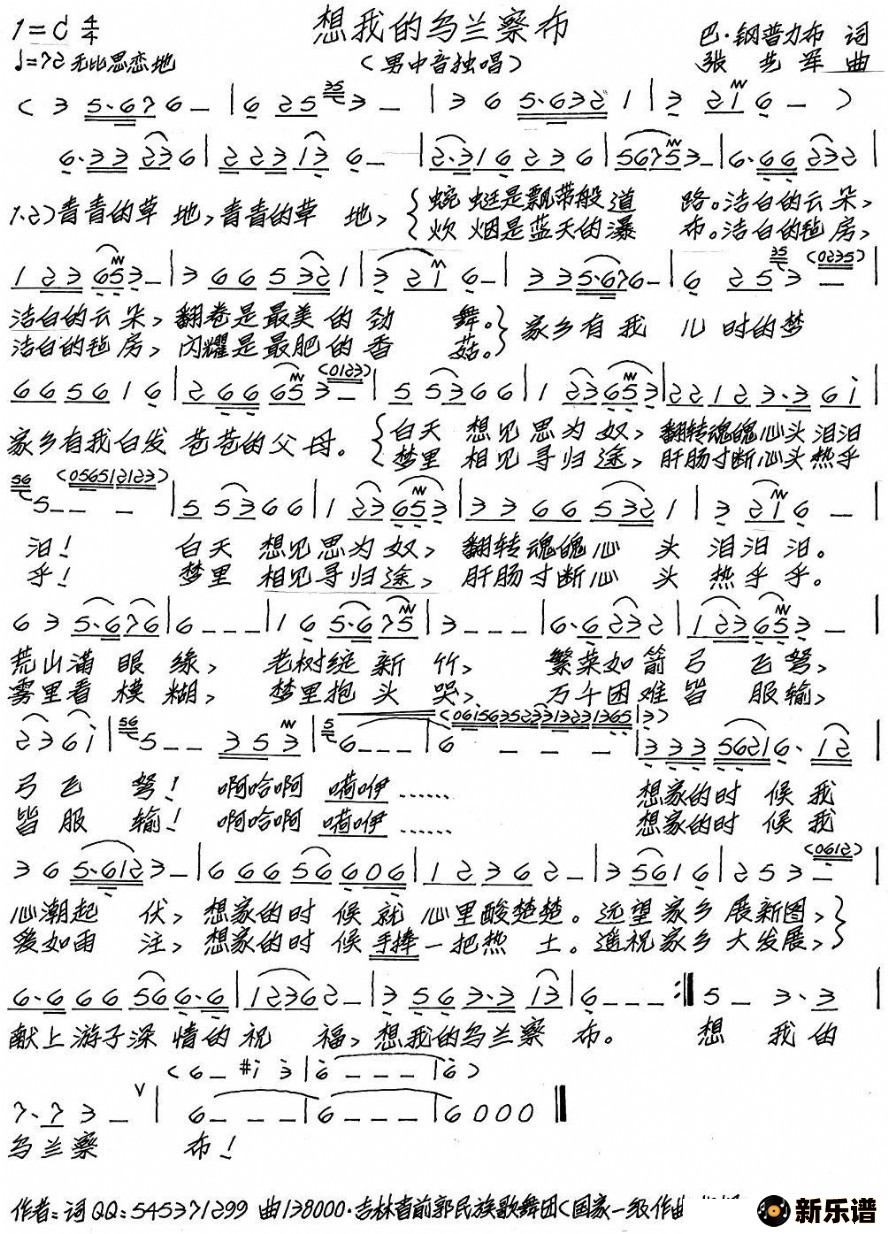 想我的乌兰察布
1=C 4/4
♩=72 无比思恋地
（男中音独唱）
巴·钢普力布 词
张艺军 曲
( 3 5·676 - | 6 25 35 3 - | 3 6 5·632 1 | 3 21 6 - )
6·33 236 | 223 13 6 - | 2·316 236 | 5675 3 - | 6·66 232 |
1.2)青青的草 地,青青的草 地, {蜿 蜒是飘带般 道 路。洁白的云朵,
炊 烟是蓝天的瀑 布。洁白的毡房,
1 23 653 - | 3 66 5 32 1 | 3 21 6 - | 3 35·676 - | 6 25 35 3 (0235) |
洁白的云 朵, 翻卷是 最美 的 劲 舞。} 家乡有 我 儿 时的梦
洁白的毡 房, 闪耀是 最肥 的 香 菇。}
6656 16 | 266 65 3 - (0123) | 5 53 66 | 1 23 653 | 2212 3·3 6i |
家乡有我白发 苍苍的父 母。 {白天 想见 思为 奴, 翻转魂魄心头 泪汩
梦里 相见 寻归 途, 肝肠寸断心头 热乎
56 5 - - - (056512123) | 5 53 66 | 1 23 653 | 33 66 532 1 | 3 21 6 - |
汩! 白天 想见思为 奴, 翻转魂魄心 头 泪汩 汩。
乎! 梦里 相见寻归 途, 肝肠寸断心 头 热乎 乎。
6 3 5·676 | 6 - - - | 1 6 5·675 | 3 - - - | 6·6 232 | 1 23 653 - |
荒山满 眼 绿, 老树绽 新 竹, 繁菜如 箭 弓 飞 弩,
雾里看 模 糊, 梦里抱 头 哭, 万千困 难 皆 服 输,
236i | 56 5 - - 353 | 5 6 - - - | 6 - - - (061563523313231365 | 3) | 333 56216· 12 |
弓 飞 弩! 啊哈啊 嗬咿…… 想家的时 候 我
皆 服 输! 啊哈啊 嗬咿…… 想家的时 候 我
3 6 5·612 3 - | 666 56606 | 12362 - | 3 561 6 | 253 - (0612) |
心潮起 伏, 想家的时 候 就 心里酸楚楚。远望 家乡 展新图,}
爱如雨 注, 想家的时 候 手捧一把热 土。遥祝 家乡 大发展,}
6·6 66 56 6·6 | 12362 - | 3 56 3·3 13 | 6 - - - :‖ 5 - 3·3 |
献上 游子深 情的 祝 福, 想我的乌兰察 布。 想 我的
( 6 - #i 3 | i6 - - - | 6 )
7·7 3 - ∨ | 6 - - - | 6 - - - | 6000 ‖
乌兰察 布!
作者:词QQ:545371299 曲138000·吉林省前郭民族歌舞团(国家一级作曲
新乐谱